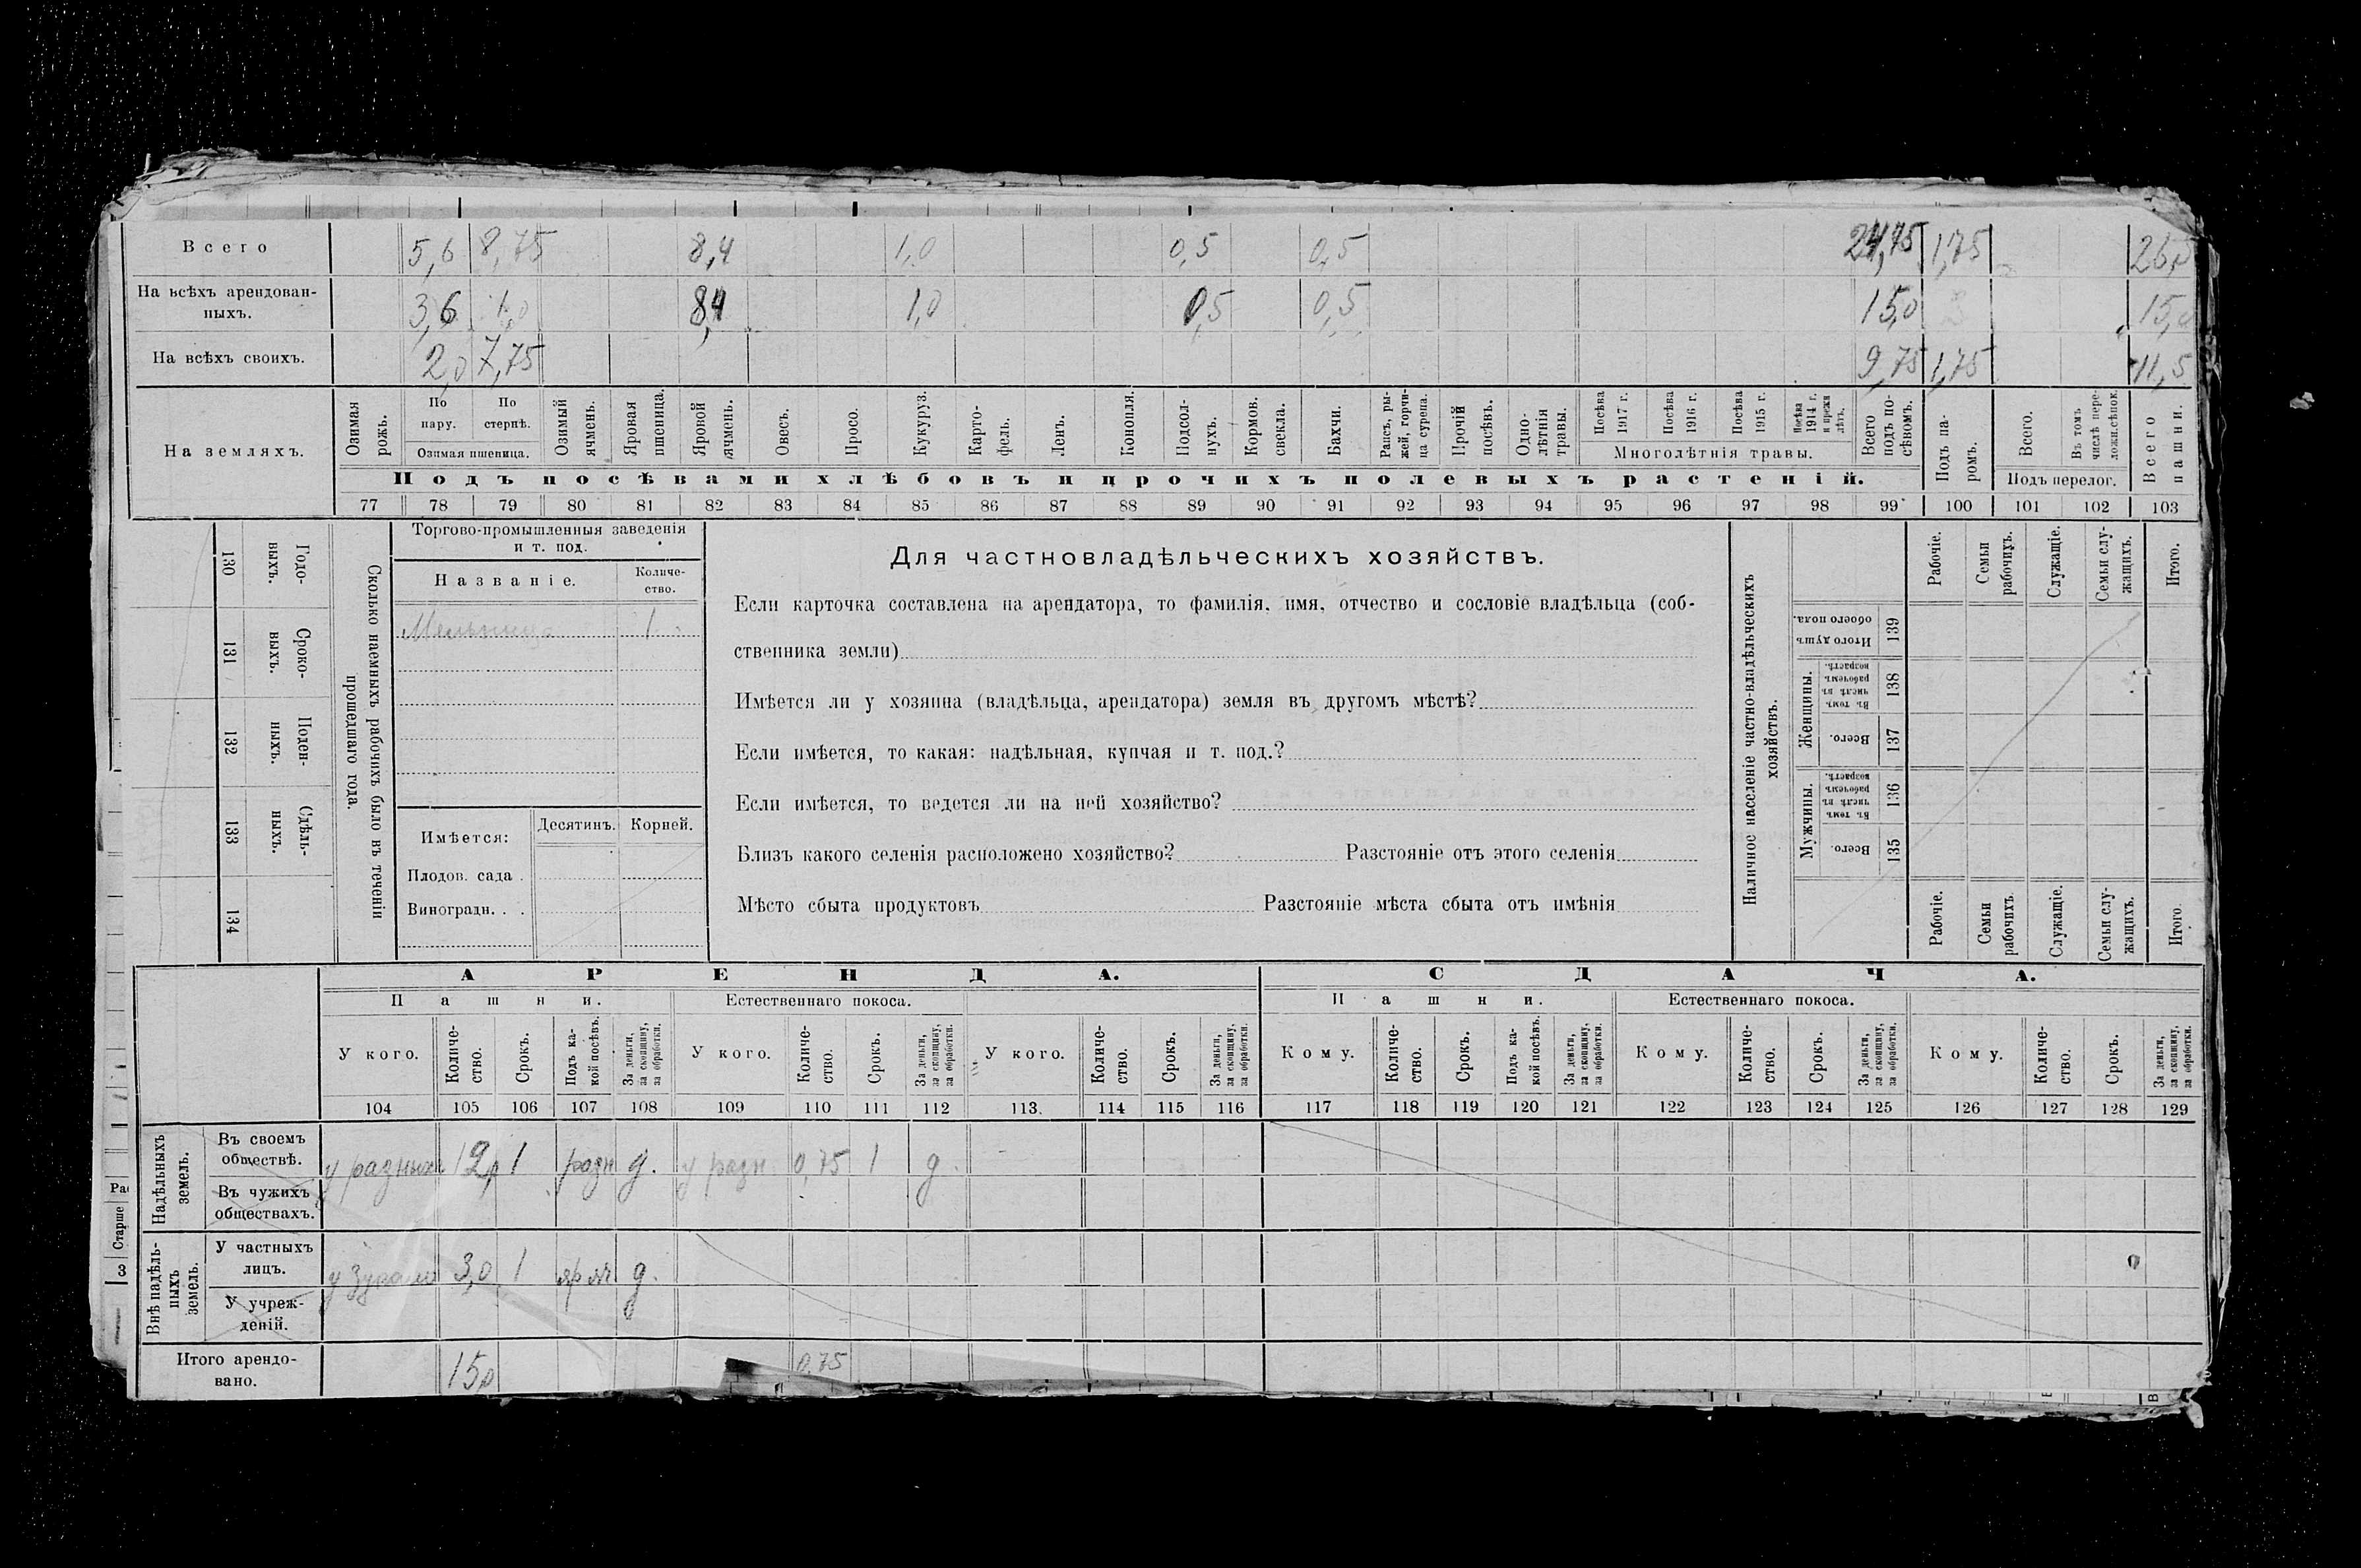 Всего 5,6 8,75 8,4 1,0 0,5 0,5 24,75 1,75 26,5
На всѣхъ арендован-
ныхъ. 3,6 1,0 8,4 1,0 0,5 0,5 15,0 15,0
На всѣхъ своихъ. 2,0 7,75 9,75 1,75 11,5
На земляхъ.
Озимая рожь.
По пару.
По стернѣ.
Озимая пшеница.
Озимый ячмень.
Яровая пшеница.
Яровой ячмень.
Овесъ.
Просо.
Кукуруз.
Карто-
фель.
Ленъ.
Конопля.
Подсол-
нухъ.
Кормов.
свекла.
Бахчи.
Рапсъ, ры-
жей, горчи-
ца сурепа.
Прочій
посѣвъ.
Одно-
лѣтнія
травы.
Посѣва
1917 г.
Посѣва
1916 г.
Посѣва
1915 г.
Посѣва
1914 г.
и прежн
лѣтъ.
Многолѣтнія травы.
Всего
подъ по-
сѣвомъ.
Подъ па-
ромъ.
Всего.
Въ томъ
числѣ пере-
ложн.сѣнок.
Подъ перелог.
Всего
пашни.
Подъ посѣвами хлѣбовъ и прочихъ полевыхъ растеній.
77 78 79 80 81 82 83 84 85 86 87 88 89 90 91 92 93 94 95 96 97 98 99 100 101 102 103
130 Годо-
выхъ.
131 Сроко-
выхъ.
132 Поден-
ныхъ.
133 Сдѣль-
ныхъ.
134
Сколько наемныхъ рабочихъ было въ теченіи
прошедшаго года.
Торгово-промышленныя заведенія
и т. под.
Названіе.
Количе-
ство.
Мельница 1
Имѣется: Десятинъ. Корней.
Плодов. сада .
Виноградн. . .
Для частновладѣльческихъ хозяйствъ.
Если карточка составлена на арендатора, то фамилія, имя, отчество и сословіе владѣльца (соб-
ственника земли)
Имѣется ли у хозяина (владѣльца, арендатора) земля въ другомъ мѣстѣ?
Если имѣется, то какая: надѣльная, купчая и т. под.?
Если имѣется, то ведется ли на ней хозяйство?
Близъ какого селенія расположено хозяйство? Разстояніе отъ этого селенія
Мѣсто сбыта продуктовъ Разстояніе мѣста сбыта отъ имѣнія
Наличное населеніе частно-владѣльческихъ
хозяйствъ.
Рабочіе.
Семьи
рабочихъ.
Служащіе.
Семьи слу-
жащихъ.
Итого.
Итого душъ
обоего пола. 139
Женщины.
Въ томъ
числѣ въ
рабочемъ
возрастѣ. 138
Всего. 137
Мужчины.
Въ томъ
числѣ въ
рабочемъ
возрастѣ. 136
Всего. 135
Рабочіе.
Семьи
рабочихъ.
Служащіе.
Семьи слу-
жащихъ.
Итого.
АРЕНДА. СДАЧА.
Пашни. Естественнаго покоса. Пашни. Естественнаго покоса.
У кого.
Количе-
ство.
Срокъ.
Подъ ка-
кой посѣвъ.
За деньги,
за скопщину,
за обработки.
У кого.
Количе-
ство.
Срокъ.
За деньги,
за скопщину,
за обработки.
У кого.
Количе-
ство.
Срокъ.
За деньги,
за скопщину,
за обработки.
Кому.
Количе-
ство.
Срокъ.
Подъ ка-
кой посѣвъ.
За деньги,
за скопщину,
за обработки.
Кому.
Количе-
ство.
Срокъ.
За деньги,
за скопщину,
за обработки.
Кому.
Количе-
ство.
Срокъ.
За деньги,
за скопщину,
за обработки.
104 105 106 107 108 109 110 111 112 113. 114 115 116 117 118 119 120 121 122 123 124 125 126 127 128 129
Надѣльныхъ
земель.
Въ своемъ
обществѣ. у разныхъ 12,0 1 разн д. у разн. 0,75 1 д.
Въ чужихъ
обществахъ.
Внѣ надѣль-
ныхъ
земель.
У частныхъ
лицъ. 3,0 1 яр яч д.
У учреж-
деній.
Итого арендо-
вано. 15,0 0,75
Старше
3